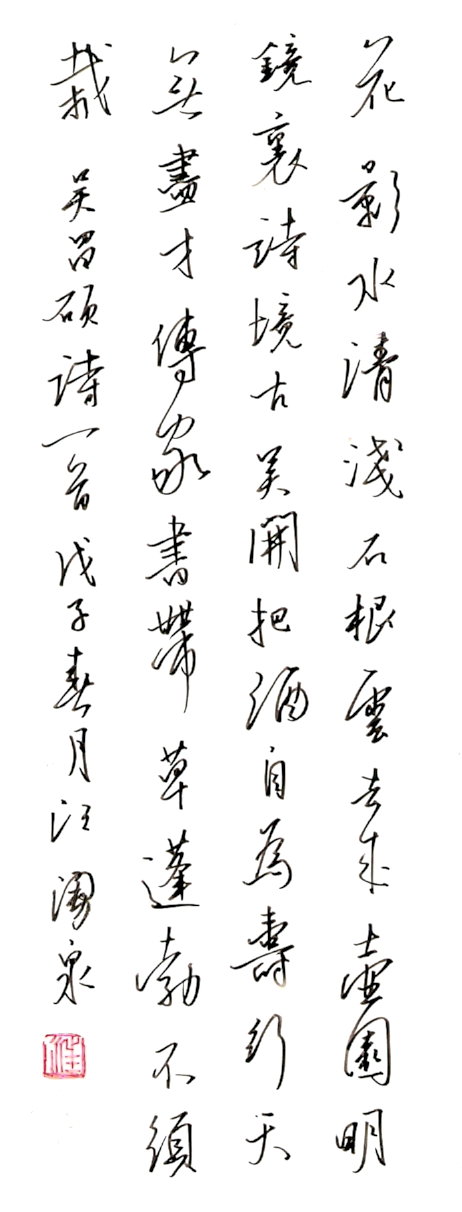 花影水清淺石根雲去來壺園明
鏡裏詩境古吴開把酒自為壽行天
無盡才傳家書帶草蓬勃不須
栽 吴昌碩詩一首戊子春月汪泉